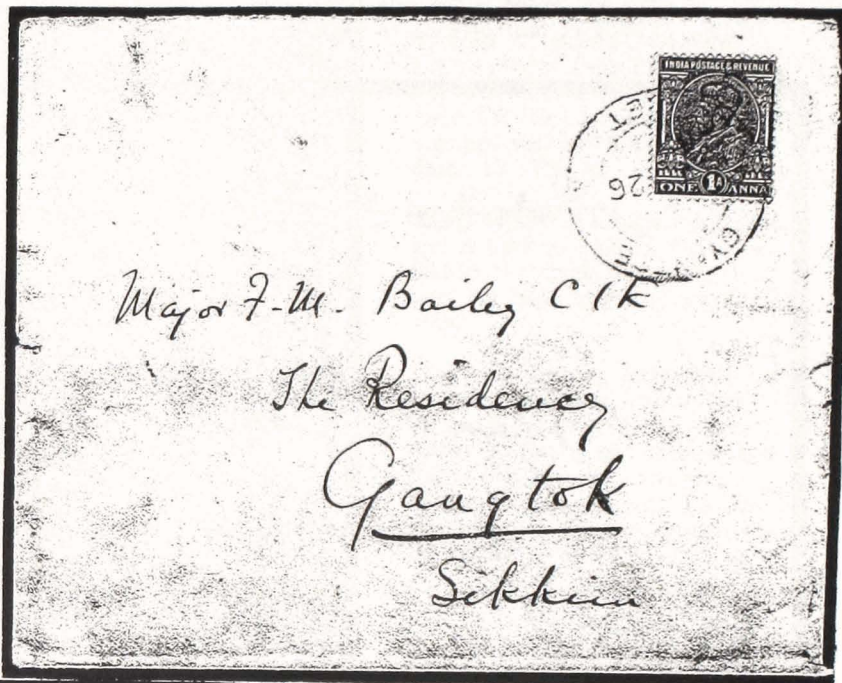 INDIA POSTAGE & REVENUE
ONE 1A ANNA
26
Major F.M. Bailey CIE
The Residency
Gangtok
Sikkim